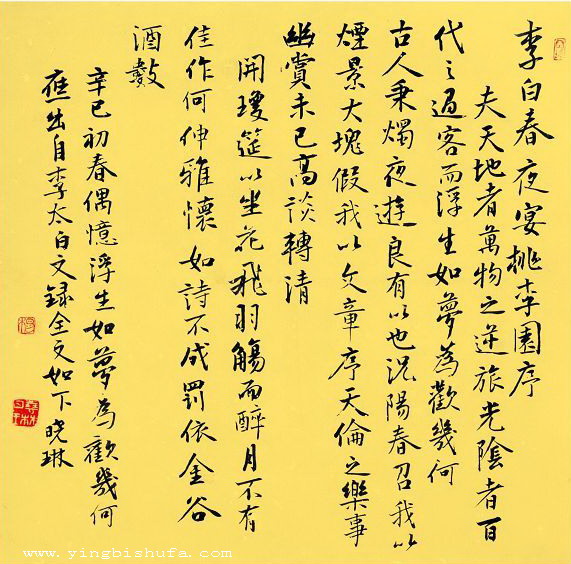 李白春夜宴桃李園序
夫天地者萬物之逆旅光陰者百
代之過客而浮生如夢為歡幾何
古人秉燭夜遊良有以也況陽春召我以
煙景大塊假我以文章序天倫之樂事
幽賞未已高談轉清
開瓊筵以坐花飛羽觴而醉月不有
佳作何伸雅懷如詩不成罰依金谷
酒數
辛巳初春偶憶浮生如夢為歡幾何
應出自李太白文録全文如下 晓琳
www.yingbishufa.com